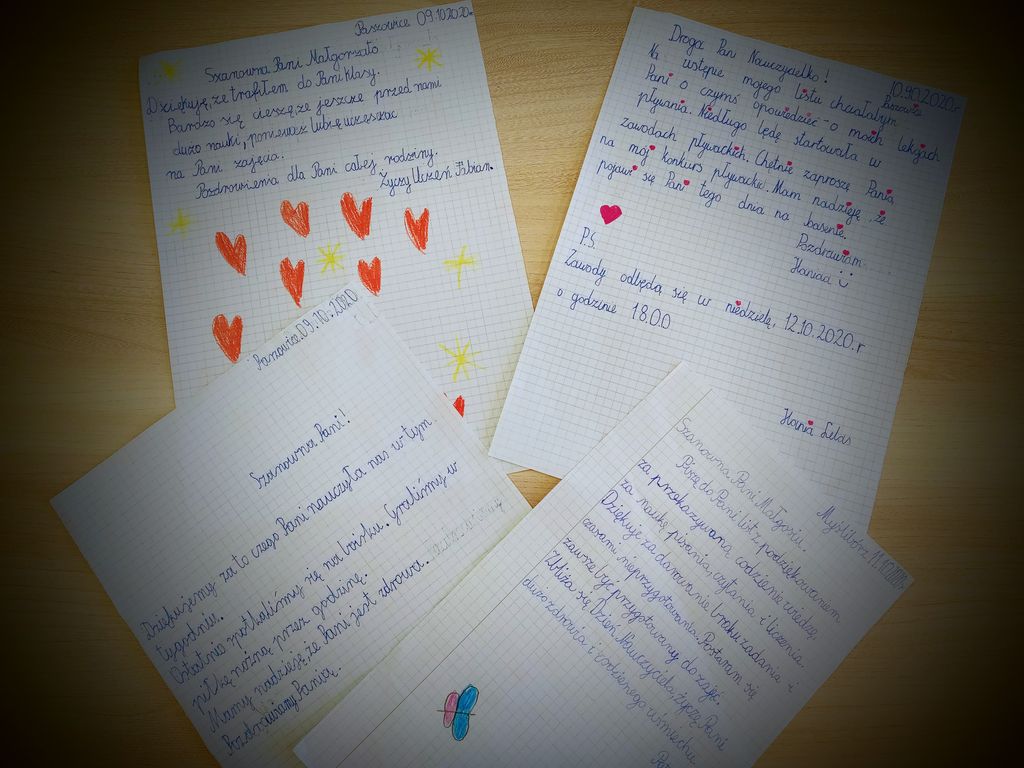 Paszowice 09.10.2020r.
Szanowna Pani Małgorzato!
Dziękuję, że trafiłem do Pani klasy.
Bardzo się cieszę, że jeszcze przed nami
dużo nauki, ponieważ lubię uczęszczać
na Pani zajęcia.
Pozdrowienia dla Pani całej rodziny.
Życzy Uczeń Fabian.
10.90.2020.r
Droga Pani Nauczycielko!
Na wstępie mojego listu chciałabym
Pani o czymś opowiedzieć - o moich lekcjach
pływania. Niedługo będę startowała w
zawodach pływackich. Chętnie zaproszę Panią
na mój konkurs pływacki. Mam nadzieję, że
pojawi się Pani tego dnia na basenie.
Pozdrawiam
Hania
P.S.
Zawody odbędą się w niedzielę, 12.10.2020.r
o godzinie 18.00
Hania
Paszowice.09.10.2020
Szanowna Pani!
Dziękujemy za to czego Pani nauczyła nas w tym
tygodniu.
Ostatnio spotkaliśmy się na boisku. Graliśmy w
piłkę nożną przez godzinę.
Mamy nadzieję, że Pani jest zdrowa.
Pozdrawiamy Panią.
Myślibórz 11.10.2020r
Szanowna Pani Małgosiu.
Piszę do Pani list z podziękowaniem
za przekazywaną codziennie wiedzę,
za naukę pisania, czytania i liczenia.
Dziękuję za darowanie braku zadania i
czasami nieprzygotowania. Postaram się
zawsze być przygotowany do zajęć.
Zbliża się Dzień Nauczyciela, życzę Pani
dużo zdrowia i codziennego uśmiechu